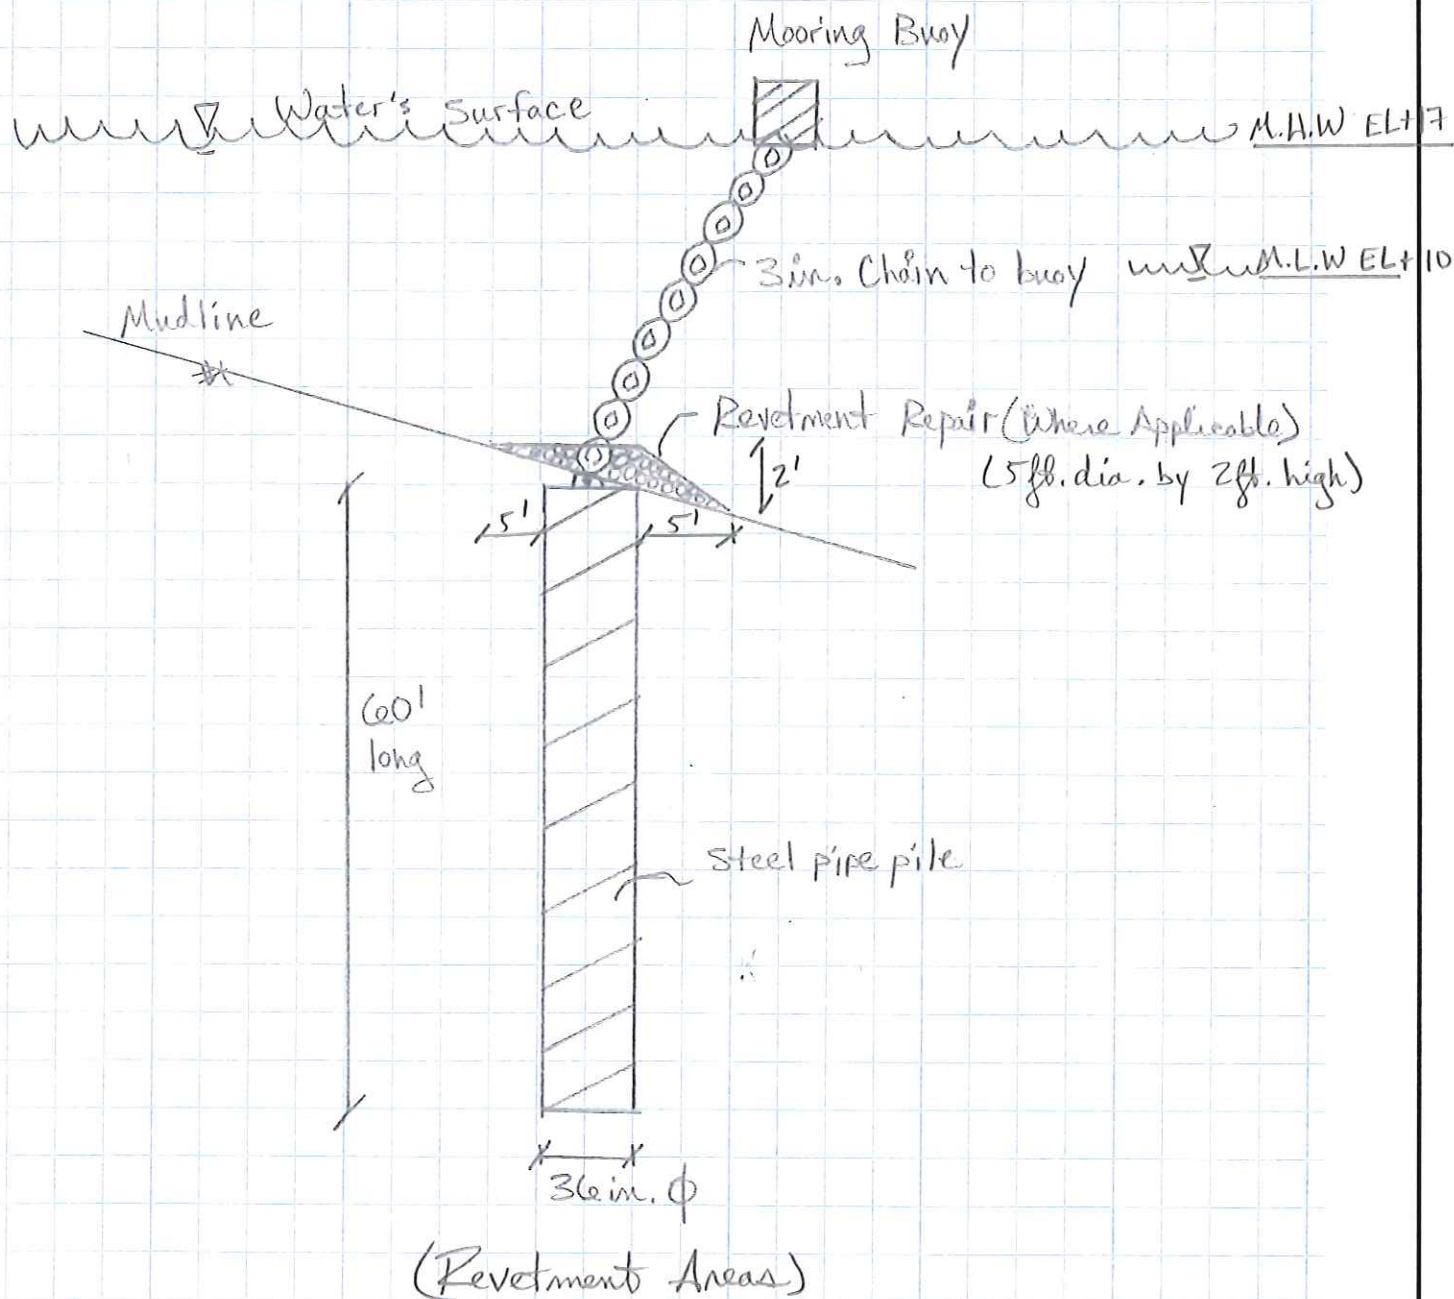 Mooring Buoy
Water's Surface
M.H.W EL+17
3in. Chain to buoy
M.L.W EL+10
Mudline
Revetment Repair (Where Applicable)
(5ft. dia. by 2ft. high)
2'
5'
5'
60'
long
Steel pipe pile
36in. ϕ
(Revetment Areas)